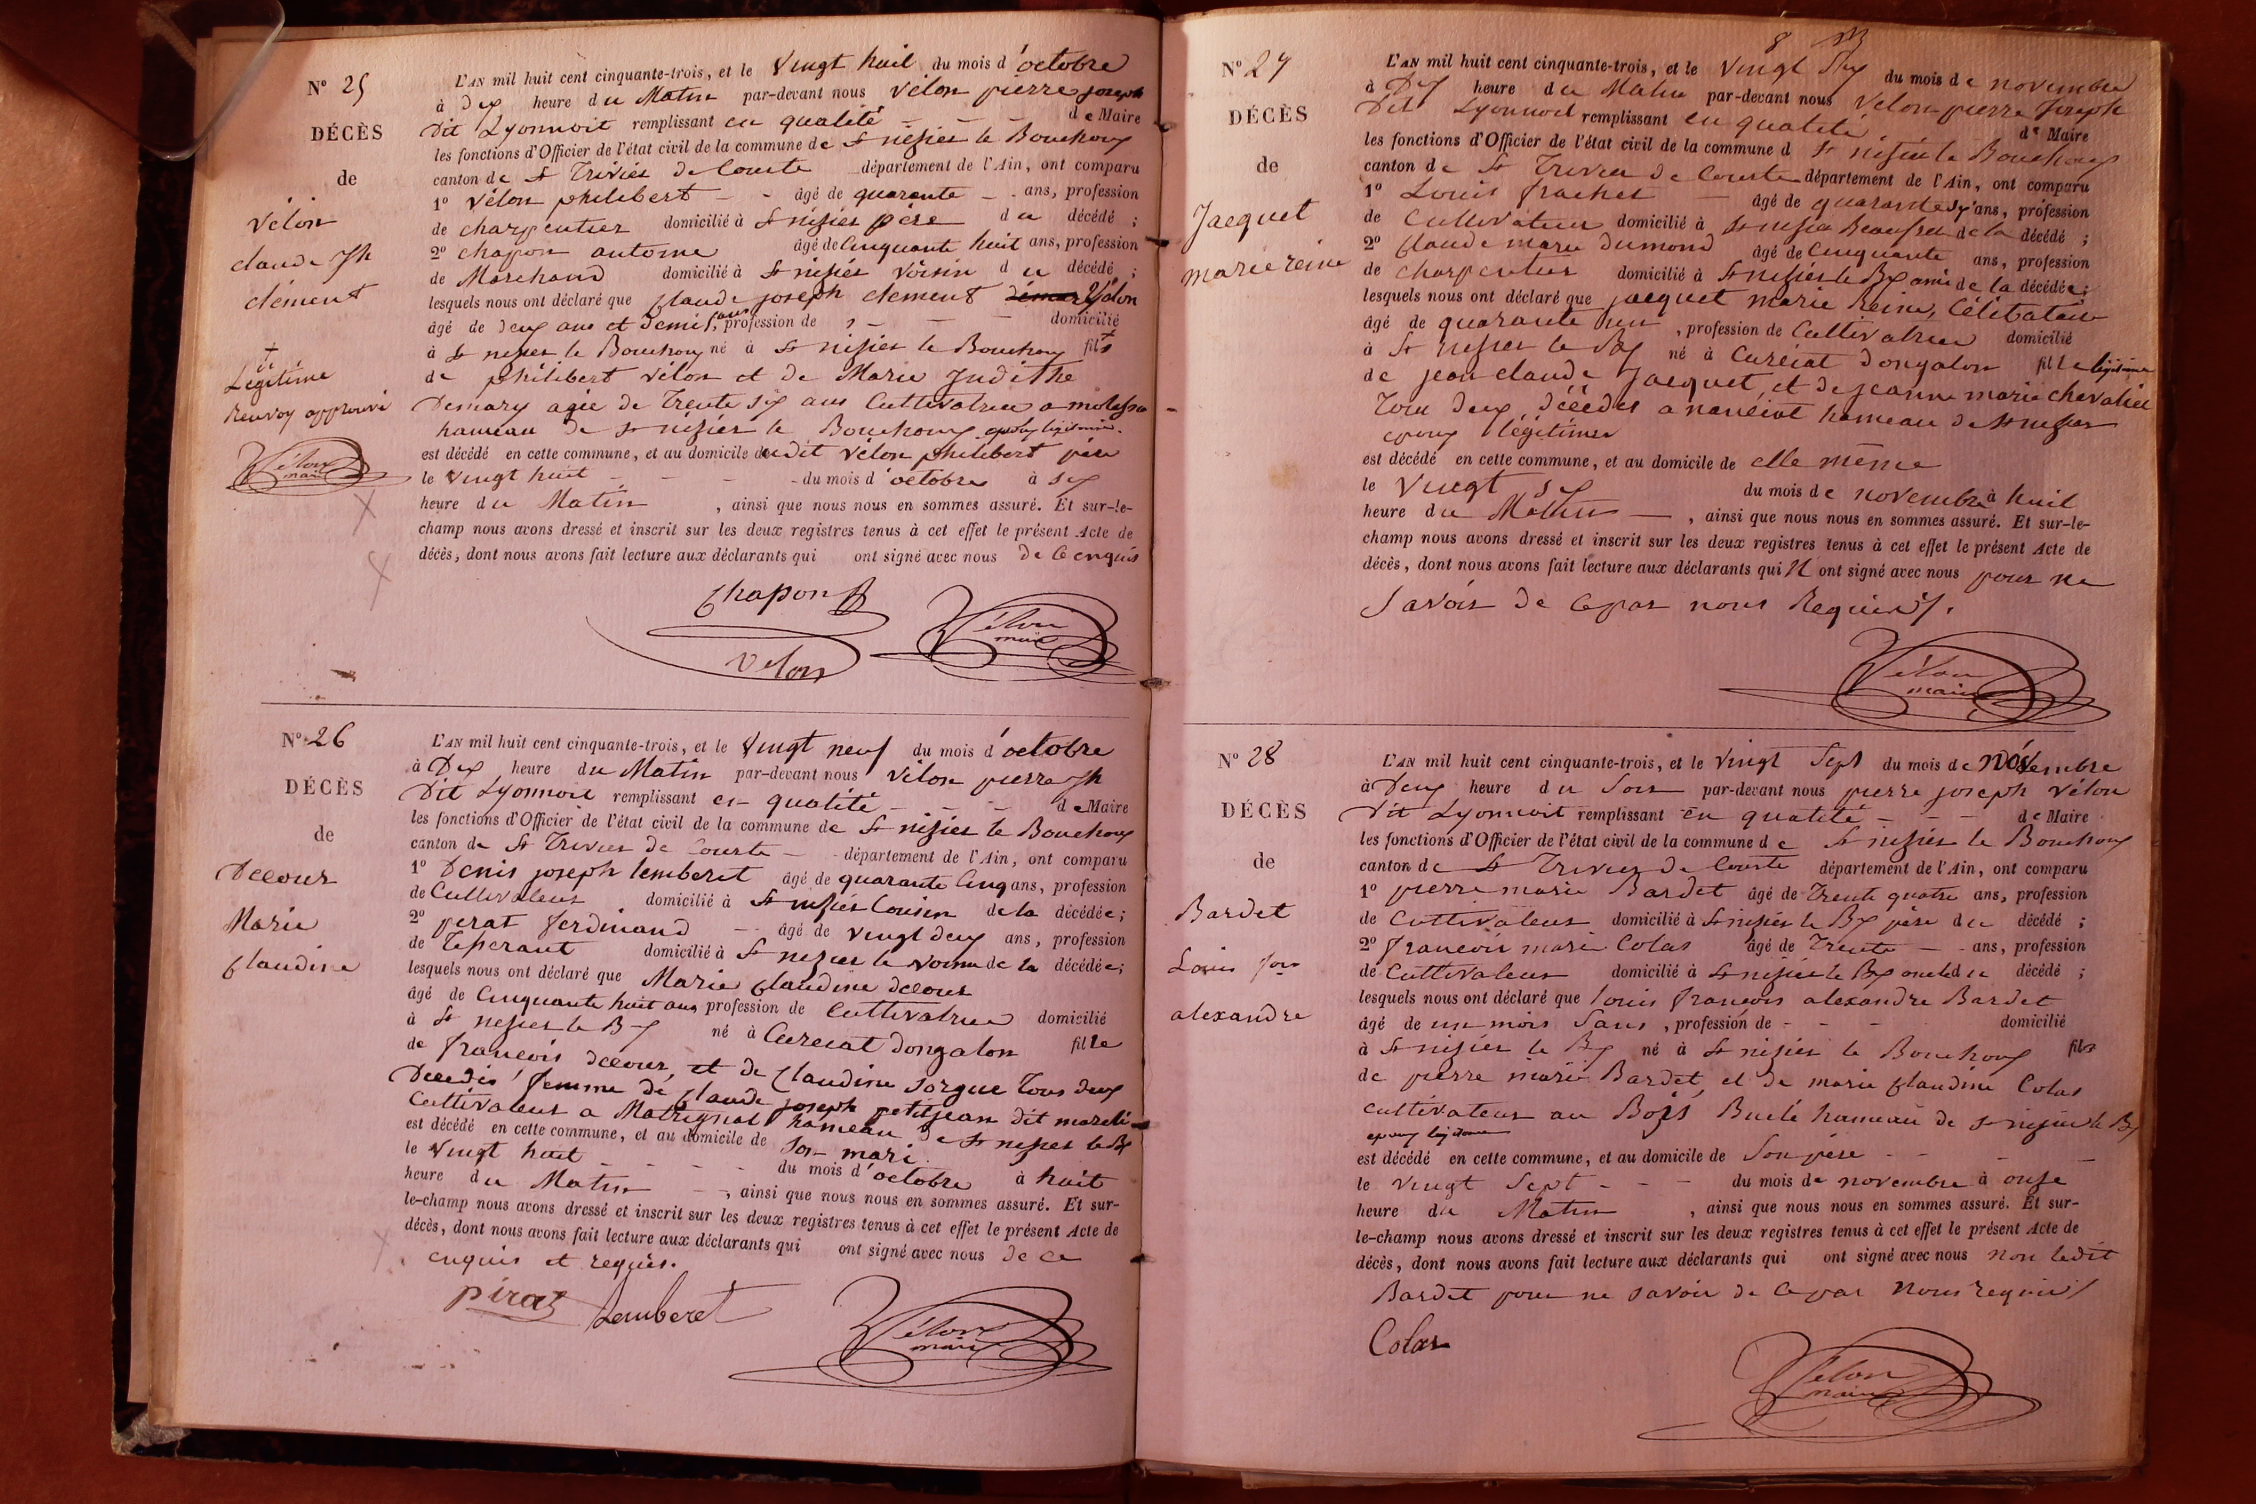 N° 25
DÉCÈS
de
vélon
claude Jh
clément
Légitime
Renvoy approuvé
Vélon
maire
L'AN mil huit cent cinquante-trois, et le vingt huit du mois d'octobre
à dix heure du Matin par-devant nous vélon pierre joseph
Dit Lyonnoit remplissant en qualité de Maire
les fonctions d'Officier de l'état civil de la commune de St nisier le Bouchoux
canton de St Trivier de Courte département de l'Ain, ont comparu
1° vélon philibert âgé de quarante ans, profession
de charpentier domicilié à St nisier père du décédé ;
2° chapon antoine âgé de Cinquante huit ans, profession
de Marchand domicilié à St nisier voisin du décédé ;
lesquels nous ont déclaré que Claude joseph clement vélon
âgé de deux ans et demi, profession de domicilié
à St nisier le Bouchoux né à St nisier le Bouchoux fils
de philibert vélon et de Marie Judithe
Demary agée de trente six ans Cultivatrice a
hameau de St nisier le Bouchoux epoux legitime
est décédé en cette commune, et au domicile dudit vélon philibert père
le vingt huit du mois d'octobre à six
heure du Matin , ainsi que nous nous en sommes assuré. Et sur-le-
champ nous avons dressé et inscrit sur les deux registres tenus à cet effet le présent Acte de
décès, dont nous avons fait lecture aux déclarants qui ont signé avec nous de ce enquis
Chapon
Vélon
maire
velon
N° 26
DÉCÈS
de
Decour
Marie
Claudine
L'AN mil huit cent cinquante-trois, et le vingt neuf du mois d'octobre
à Dix heure du Matin par-devant nous vélon pierre Jh
Dit Lyonnoit remplissant en qualité de Maire
les fonctions d'Officier de l'état civil de la commune de St nisier le Bouchoux
canton de St Trivier de Courte département de l'Ain, ont comparu
1° Denis joseph lemberet âgé de quarante Cinq ans, profession
de Cultivateur domicilié à St nisier Cousin de la décédée ;
2° perat ferdinand âgé de vingt deux ans, profession
de domicilié à St nisier le voisin de la décédée ;
lesquels nous ont déclaré que Marie Claudine decour
âgé de Cinquante huit ans profession de Cultivatrice domicilié
à St nisier le Bx né à Curciat dongalon fille
de francois decour, et de Claudine sorgue tous deux
Decedés femme de Claude joseph petitjean dit
Cultivateur a Matrignat hameau de St nisier le Bx
est décédé en cette commune, et au domicile de son mari
le vingt huit du mois d'octobre à huit
heure du Matin , ainsi que nous nous en sommes assuré. Et sur-
le-champ nous avons dressé et inscrit sur les deux registres tenus à cet effet le présent Acte de
décès, dont nous avons fait lecture aux déclarants qui ont signé avec nous de ce
enquis et requis.
pirat Lemberet
Vélon
maire
N° 27
DÉCÈS
de
Jacquet
marie reine
L'AN mil huit cent cinquante-trois, et le vingt Six du mois de novembre
à Dix heure du Matin par-devant nous vélon pierre Joseph
Dit Lyonnoit remplissant en qualité de Maire
les fonctions d'Officier de l'état civil de la commune d St nisier le Bouchoux
canton de St Trivier de Courte département de l'Ain, ont comparu
1° Louis frachet âgé de quarante six ans, profession
de Cultivateur domicilié à St nisier Beaufrere de la décédé ;
2° Claude marie dumond âgé de Cinquante ans, profession
de charpentier domicilié à St nisier le Bx ami de la décédée ;
lesquels nous ont déclaré que jacquet marie Reine, Célibataire
âgé de quarante un , profession de Cultivatrice domicilié
à St nisier le Bx né à Curciat dongalon fille légitime
de jean claude Jacquet, et de jeanne marie chevalier
tous deux décédés a hameau de St nisier
epoux légitimes
est décédé en cette commune, et au domicile de elle même
le vingt six du mois de novembre à huit
heure du Matin , ainsi que nous nous en sommes assuré. Et sur-le-
champ nous avons dressé et inscrit sur les deux registres tenus à cet effet le présent Acte de
décès, dont nous avons fait lecture aux déclarants qui N ont signé avec nous pour ne
savoir de ce par nous Requis.
Vélon
maire
N° 28
DÉCÈS
de
Bardet
Louis fois
alexandre
L'AN mil huit cent cinquante-trois, et le vingt Sept du mois de novembre
à Deux heure du Soir par-devant nous pierre joseph vélon
Dit Lyonnoit remplissant en qualité de Maire
les fonctions d'Officier de l'état civil de la commune de St nisier le Bouchoux
canton de St Trivier de Courte département de l'Ain, ont comparu
1° pierre marie Bardet âgé de trente quatre ans, profession
de Cultivateur domicilié à St nisier le Bx père du décédé ;
2° francois marie Colas âgé de trente ans, profession
de Cultivateur domicilié à St nisier le Bx oncle du décédé ;
lesquels nous ont déclaré que louis françois alexandre Bardet
âgé de un mois Sans , profession de domicilié
à St nisier le Bx né à St nisier le Bouchoux fils
de pierre marie Bardet, et de marie Claudine Colas
cultivateur au Bois Buclé hameau de St nisier le Bx
epoux legitime
est décédé en cette commune, et au domicile de Son père
le vingt Sept du mois de novembre à onze
heure du Matin , ainsi que nous nous en sommes assuré. Et sur-
le-champ nous avons dressé et inscrit sur les deux registres tenus à cet effet le présent Acte de
décès, dont nous avons fait lecture aux déclarants qui ont signé avec nous non ledit
Bardet pour ne savoir de ce par nous requis
Colas
Vélon
maire